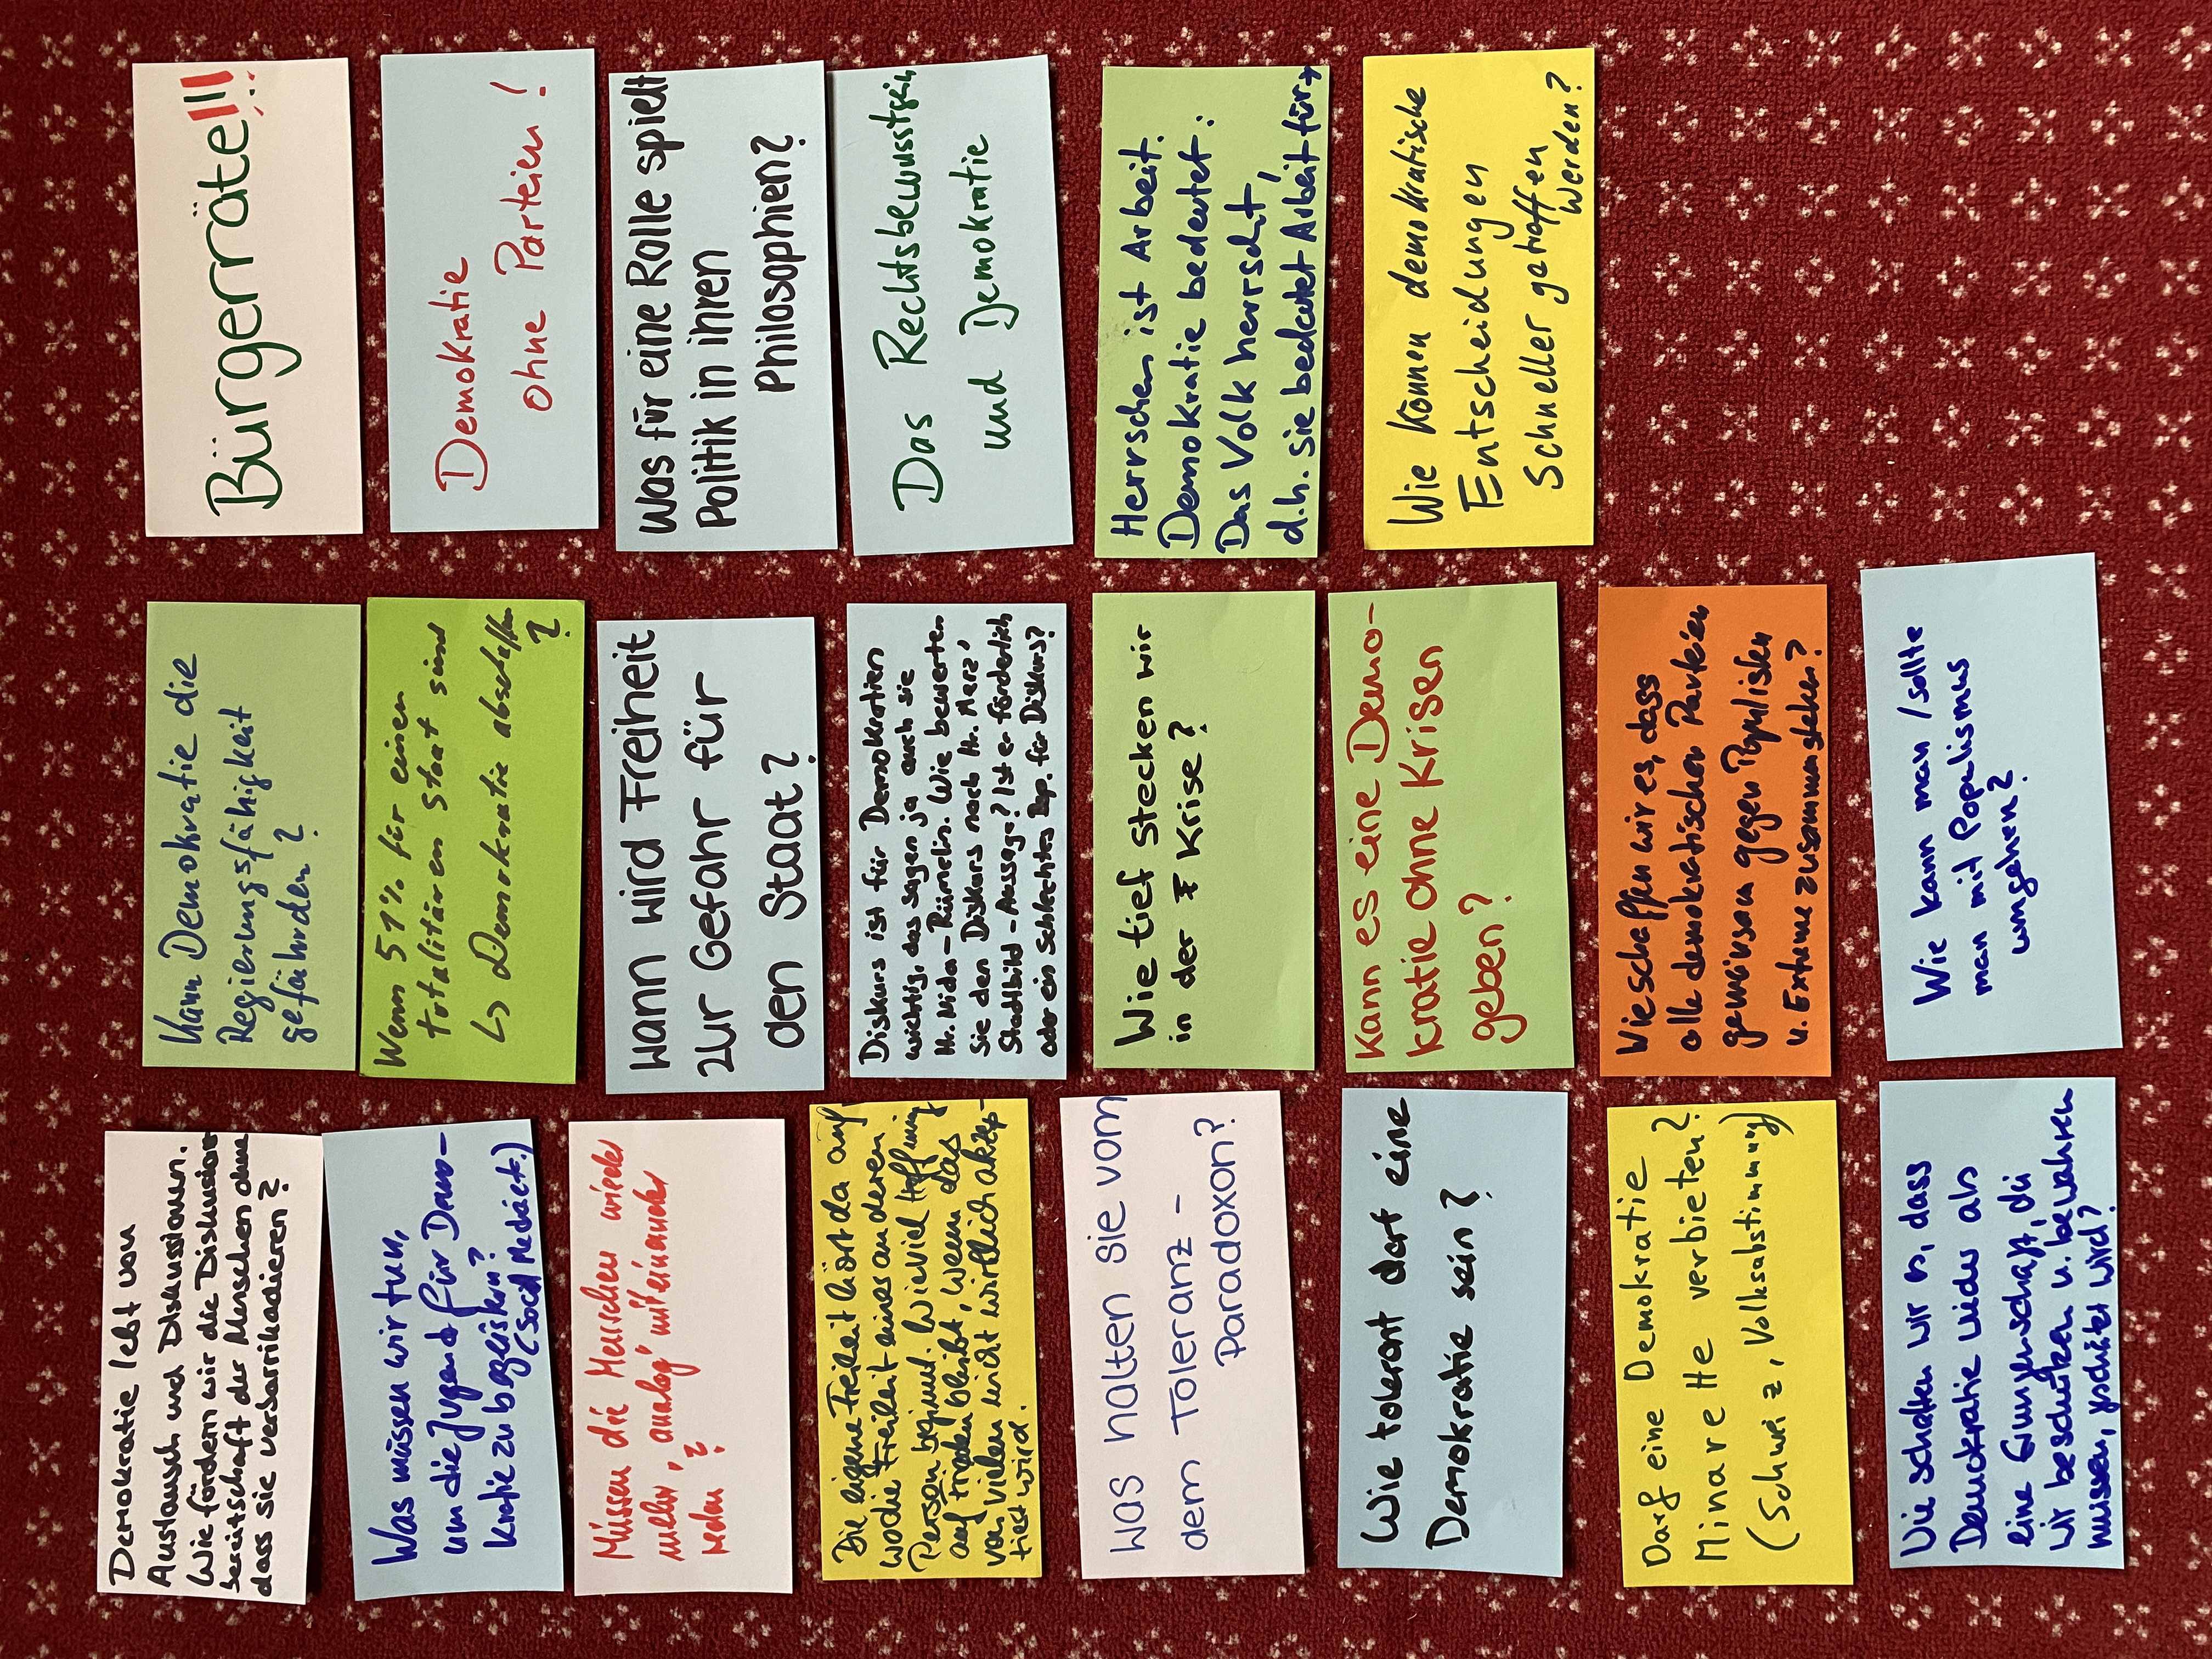 Demokratie lebt von
Austausch und Diskussionen.
Wie fördern wir die Diskussions-
bereitschaft der Menschen ohne
dass sie verbarrikadieren?
Was müssen wir tun,
um die Jugend für Demo-
kratie zu begeistern?
(Social Media et.)
Müssen die Menschen wieder
mehr "analog" miteinander
reden?
Die eigene Freiheit hört da auf,
wo die Freiheit eines anderen
Person beginnt. Wieviel Hoffnung
auf Frieden bleibt, wenn das
von vielen nicht wirklich akzep-
tiert wird.
Was halten sie vom
dem Toleranz-
Paradoxon?
Wie tolerant darf eine
Demokratie sein?
Darf eine Demokratie
Minarette verbieten?
(Schweiz, Volksabstimmung)
Wie schaffen wir es, dass
Demokratie wieder als
eine Errungenschaft, die
wir beschützen u. bewahren
müssen, geschätzt wird?
Kann Demokratie die
Regierungsfähigkeit
gefährden?
Wenn 51% für einen
totalitären Staat sind
↳ Demokratie abschaffen
?
Wann wird Freiheit
zur Gefahr für
den Staat?
Diskurs ist für Demokratien
wichtig, das sagen ja auch sie
Hr. Nida-Rümelin. Wie bewerten
Sie den Diskurs nach Hr. Merz'
Stadtbild-Aussage? Ist er förderlich
oder ein schlechtes Bsp. für Diskurs?
Wie tief stecken wir
in der Krise?
Kann es eine Demo-
kratie ohne Krisen
geben?
Wie schaffen wir es, dass
alle demokratischen Parteien
gemeinsam gegen Populisten
u. Extreme zusammenstehen?
Wie kann man/sollte
man mit Populismus
umgehen?
Bürgerräte!!!
Demokratie
ohne Parteien!
Was für eine Rolle spielt
Politik in ihren
Philosophien?
Das Rechtsbewusstsein
und Demokratie
Herrschen ist Arbeit.
Demokratie bedeutet:
Das Volk herrscht,
d.h. sie bedeutet Arbeit für →
Wie können demokratische
Entscheidungen
schneller getroffen
werden?